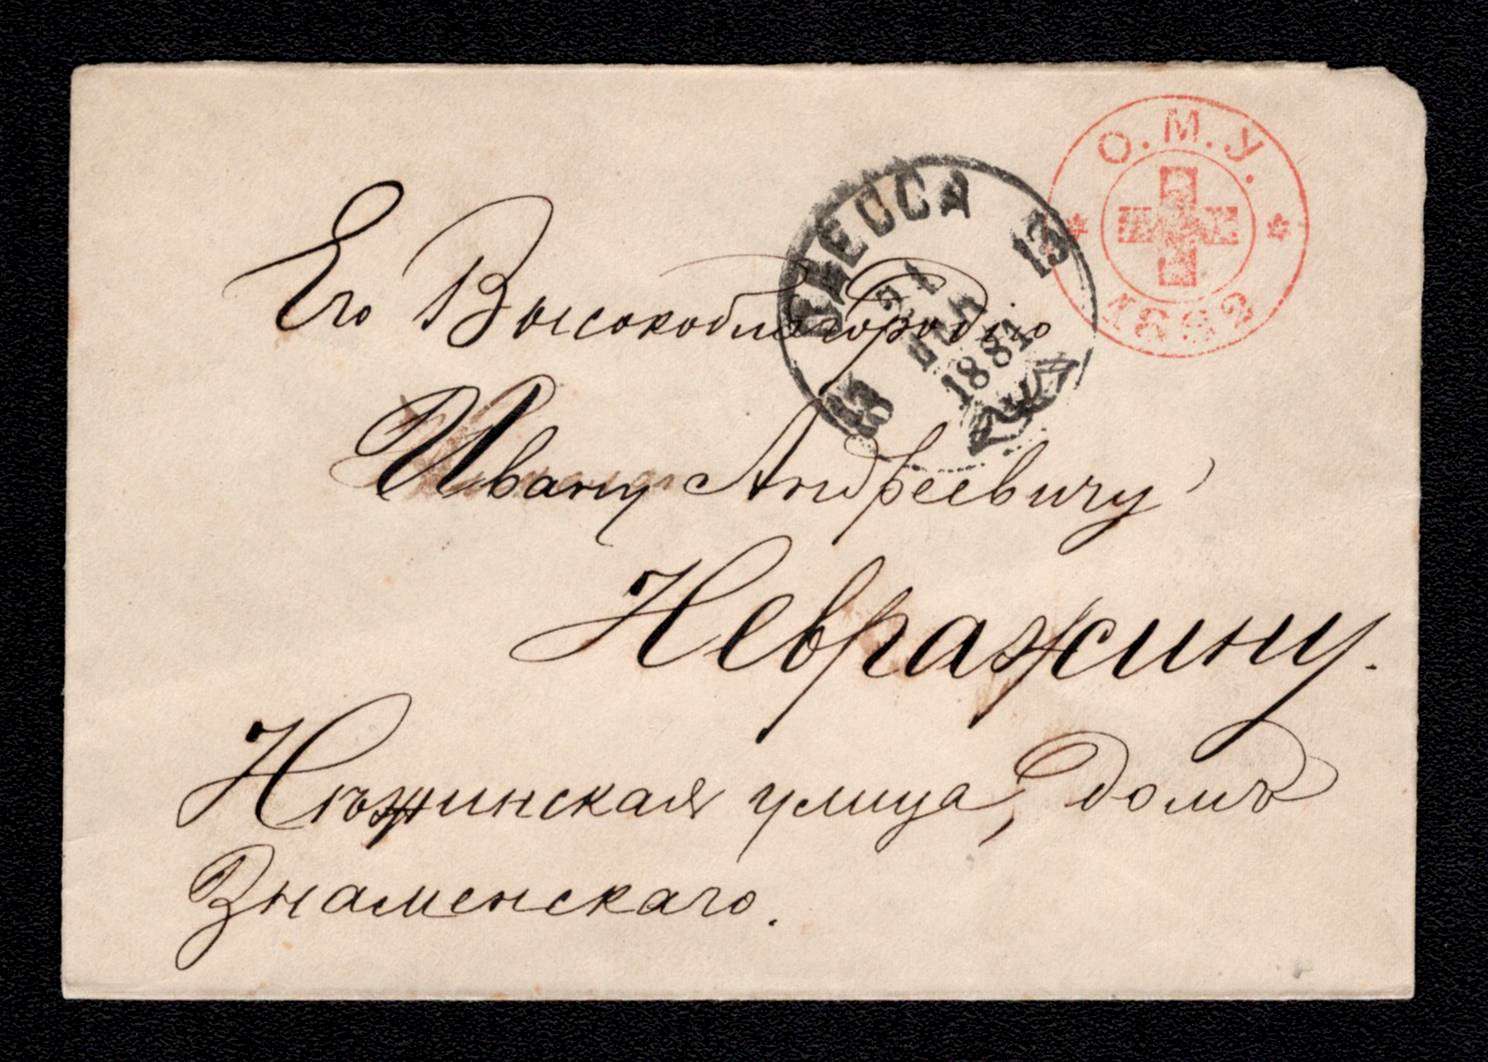 О.М.У.
1882
ОДЕССА
13
21
1881
13
Его Высокоблагородію
Ивану Андреевичу
Невражину.
Нѣжинская улица, домъ
Знаменскаго.